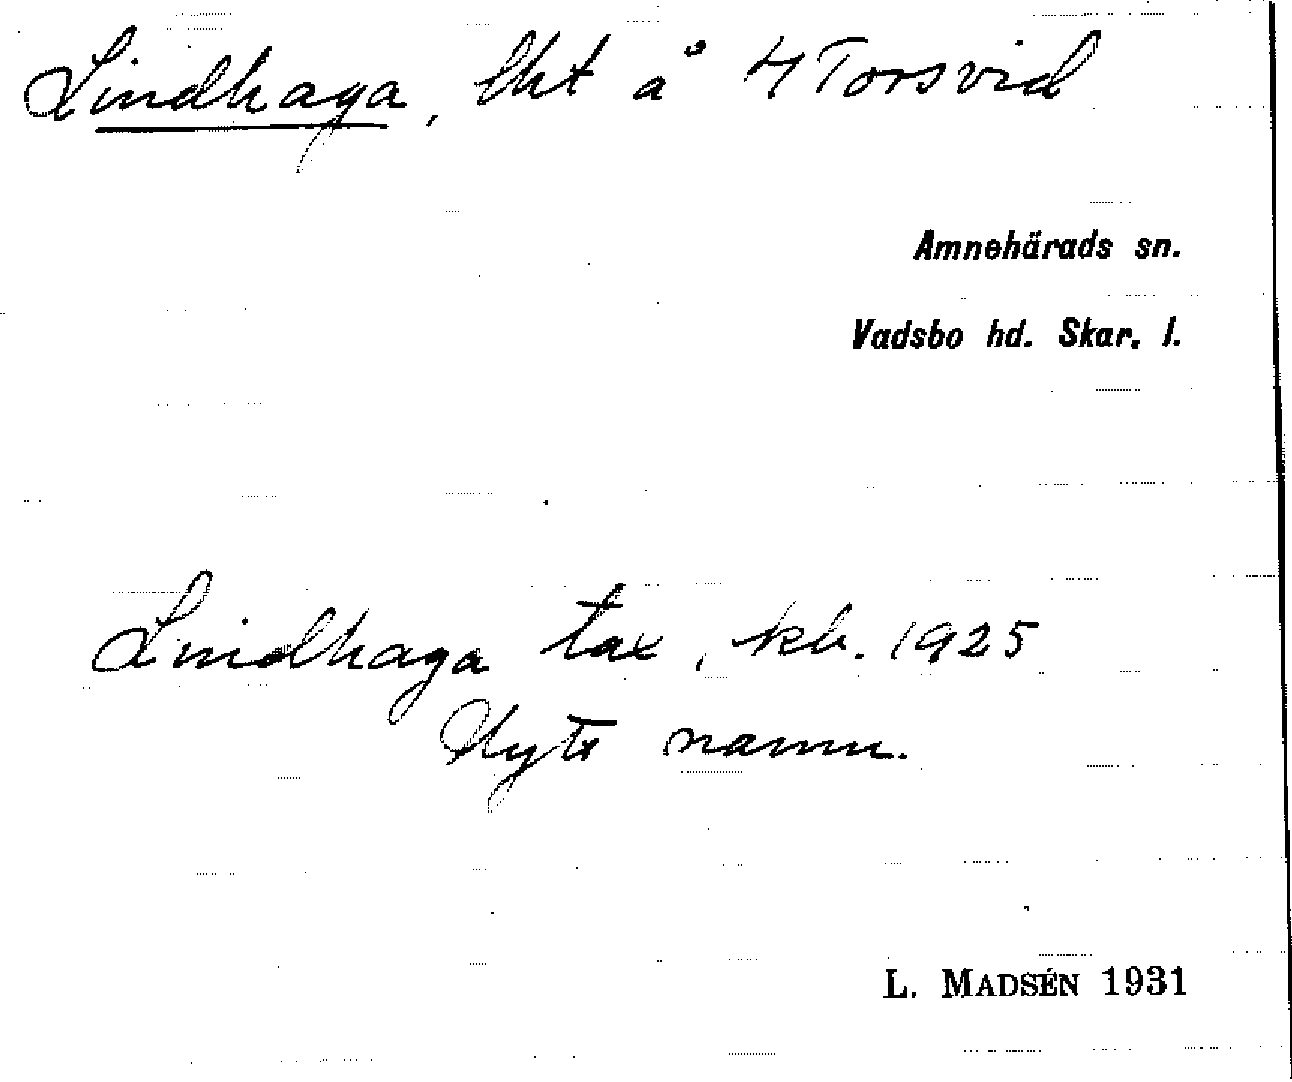 Lindhaga, lht å 4 Torsvid
Amnehärads sn.
Vadsbo hd. Skar. l.
Lindhaga tax, kb. 1925
Nytt namn.
L. MADSÉN 1931